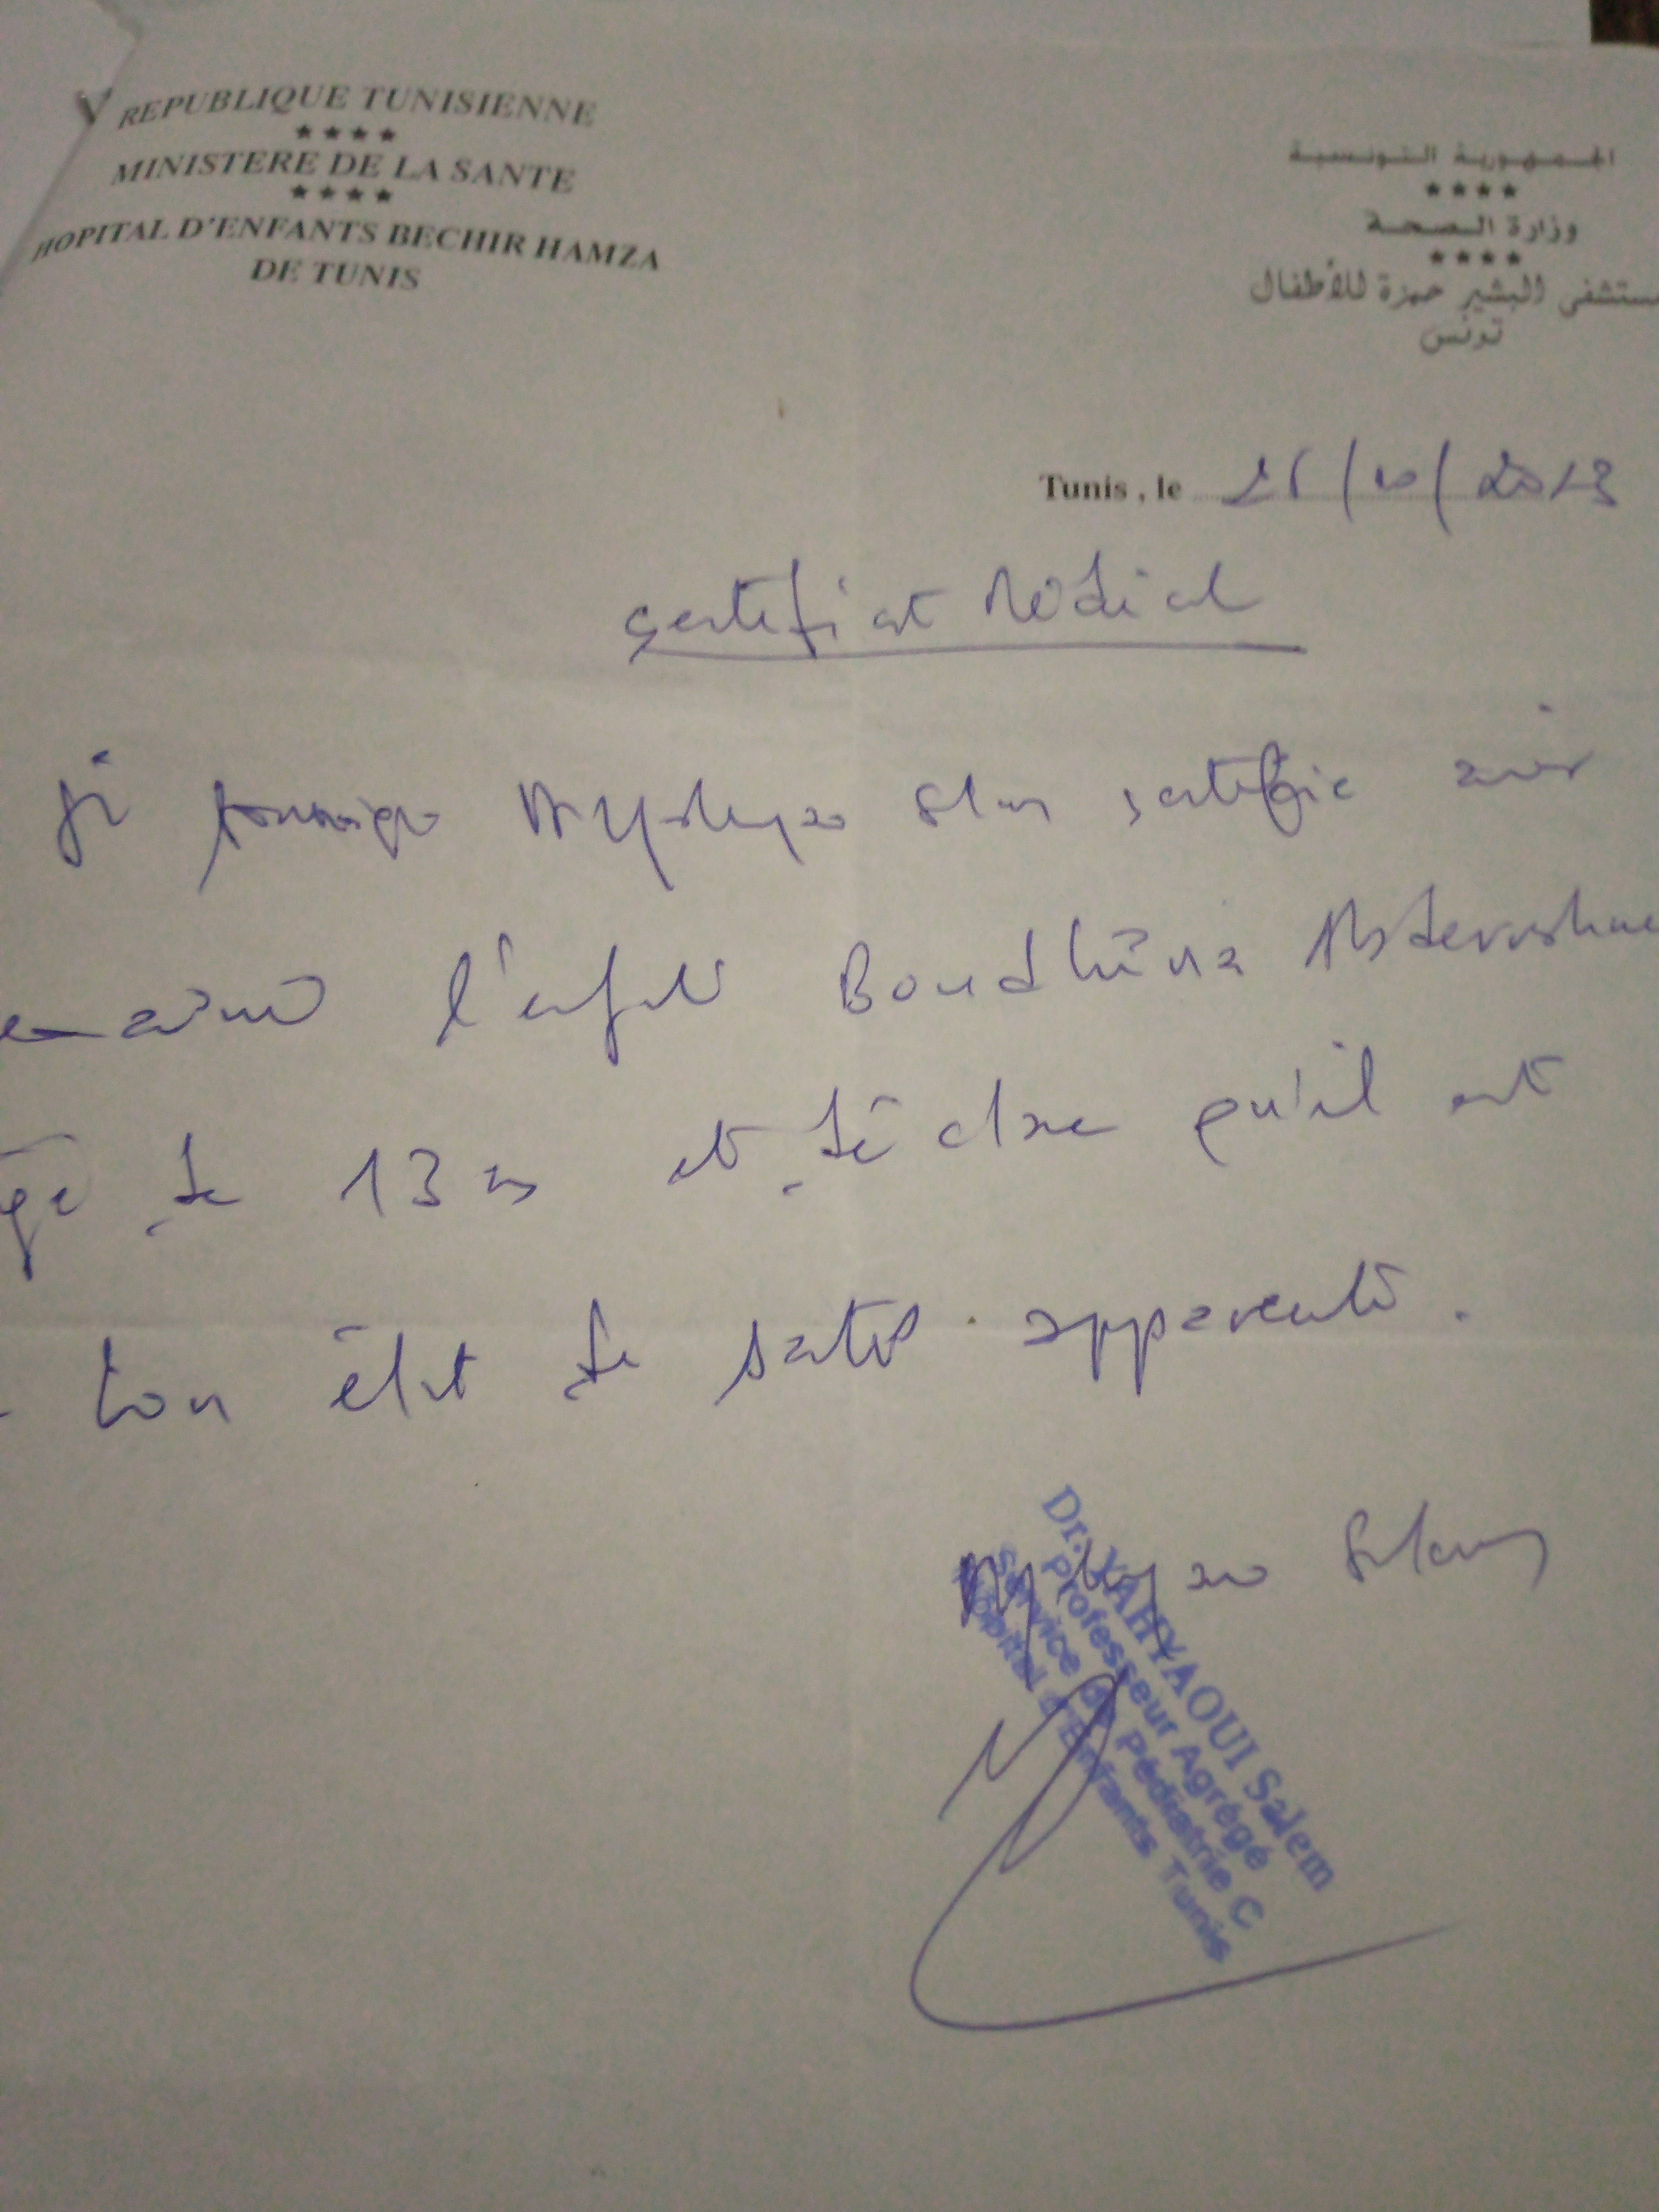 REPUBLIQUE TUNISIENNE
★★★★
MINISTERE DE LA SANTE
★★★★
HOPITAL D'ENFANTS BECHIR HAMZA
DE TUNIS
الجمهورية التونسية
★★★★
وزارة الصحة
★★★★
مستشفى البشير حمزة للأطفال
تونس
Tunis , le
certificat Médical
Je soussigné certifie avoir
examiné l'enfant Boudhina
âgé de 13 ans et déclare qu'il est
bon état de santé apparente.
Dr. YAHYAOUI Salem
Professeur Agrégé
Service de Pédiatrie C
Hôpital d'Enfants Tunis